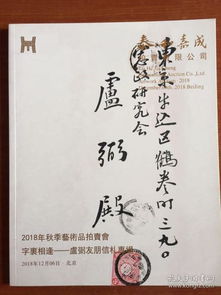 嘉成
有限公司
Auction Co.,Ltd
2018
2018 Beijing
東京牛込区鶴巻町三九〇
法政研究会
盧弼殿
2018年秋季藝術品拍賣會
字裏相逢——盧弼友朋信札專場
2018年12月06日·北京